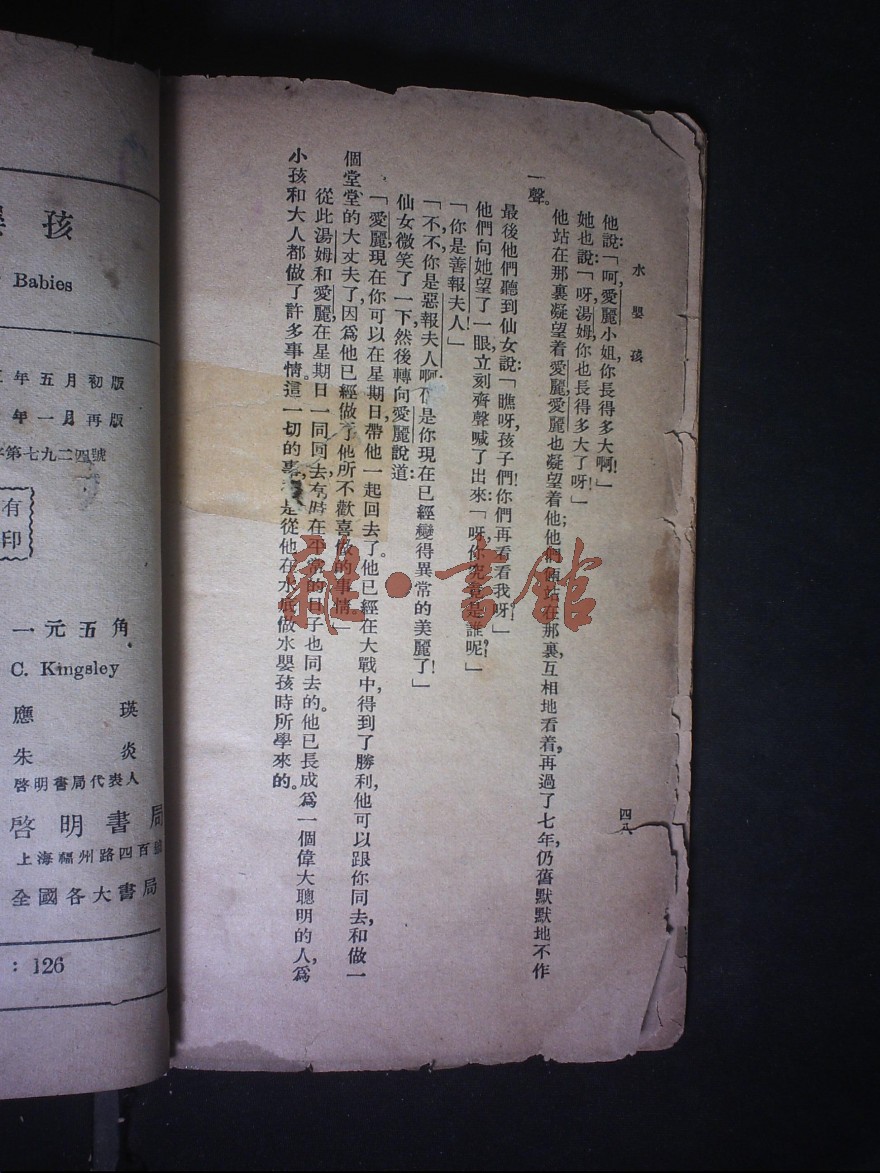 水嬰孩
四八
他說:「呵,愛麗小姐,你長得多大啊!」
她也說:「呀,湯姆,你也長得多大了呀!」
他站在那裏凝望着愛麗,愛麗也凝望着他;他們倆站在那裏,互相地看着,再過了七年,仍舊默默地不作
一聲。
最後他們聽到仙女說:「瞧呀,孩子們!你們再看看我呀?」
他們向她望了一眼,立刻齊聲喊了出來:「呀,你究竟是誰呢?」
「你是善報夫人!」
「不,不,你是惡報夫人啊,是你現在已經變得異常的美麗了!」
仙女微笑了一下,然後轉向愛麗說道:
「愛麗,現在你可以在星期日帶他一起回去了。他已經在大戰中,得到了勝利,他可以跟你同去,和做一
個堂堂的大丈夫了,因爲他已經做了他所不歡喜做的事情。」
從此湯姆和愛麗在星期日一同回去,有時在平常的日子也同去的。他已長成爲一個偉大聰明的人,爲
小孩和大人都做了許多事情。這一切的事,是從他在水底做水嬰孩時所學來的。
孩
Babies
年五月初版
年一月再版
第七九二四號
有
印
一元五角
C. Kingsley
應瑛
朱炎
啓明書局代表人
啓明書局
上海福州路四百
全國各大書局
: 126
雜·書館